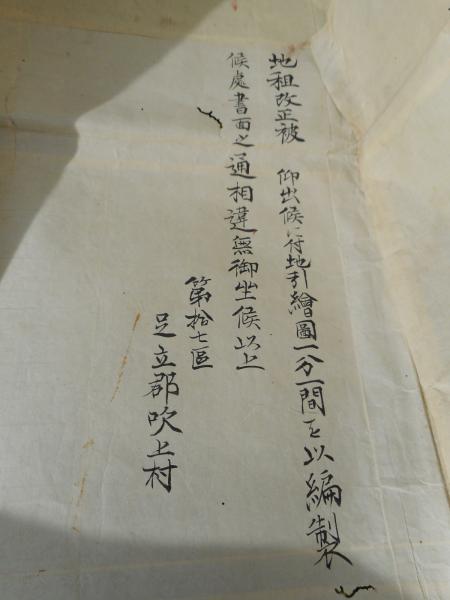 地租改正被　仰出候ニ付地引繪圖一分一間を以編製
候處書面之通相違無御坐候以上
第拾七區
足立郡吹上村